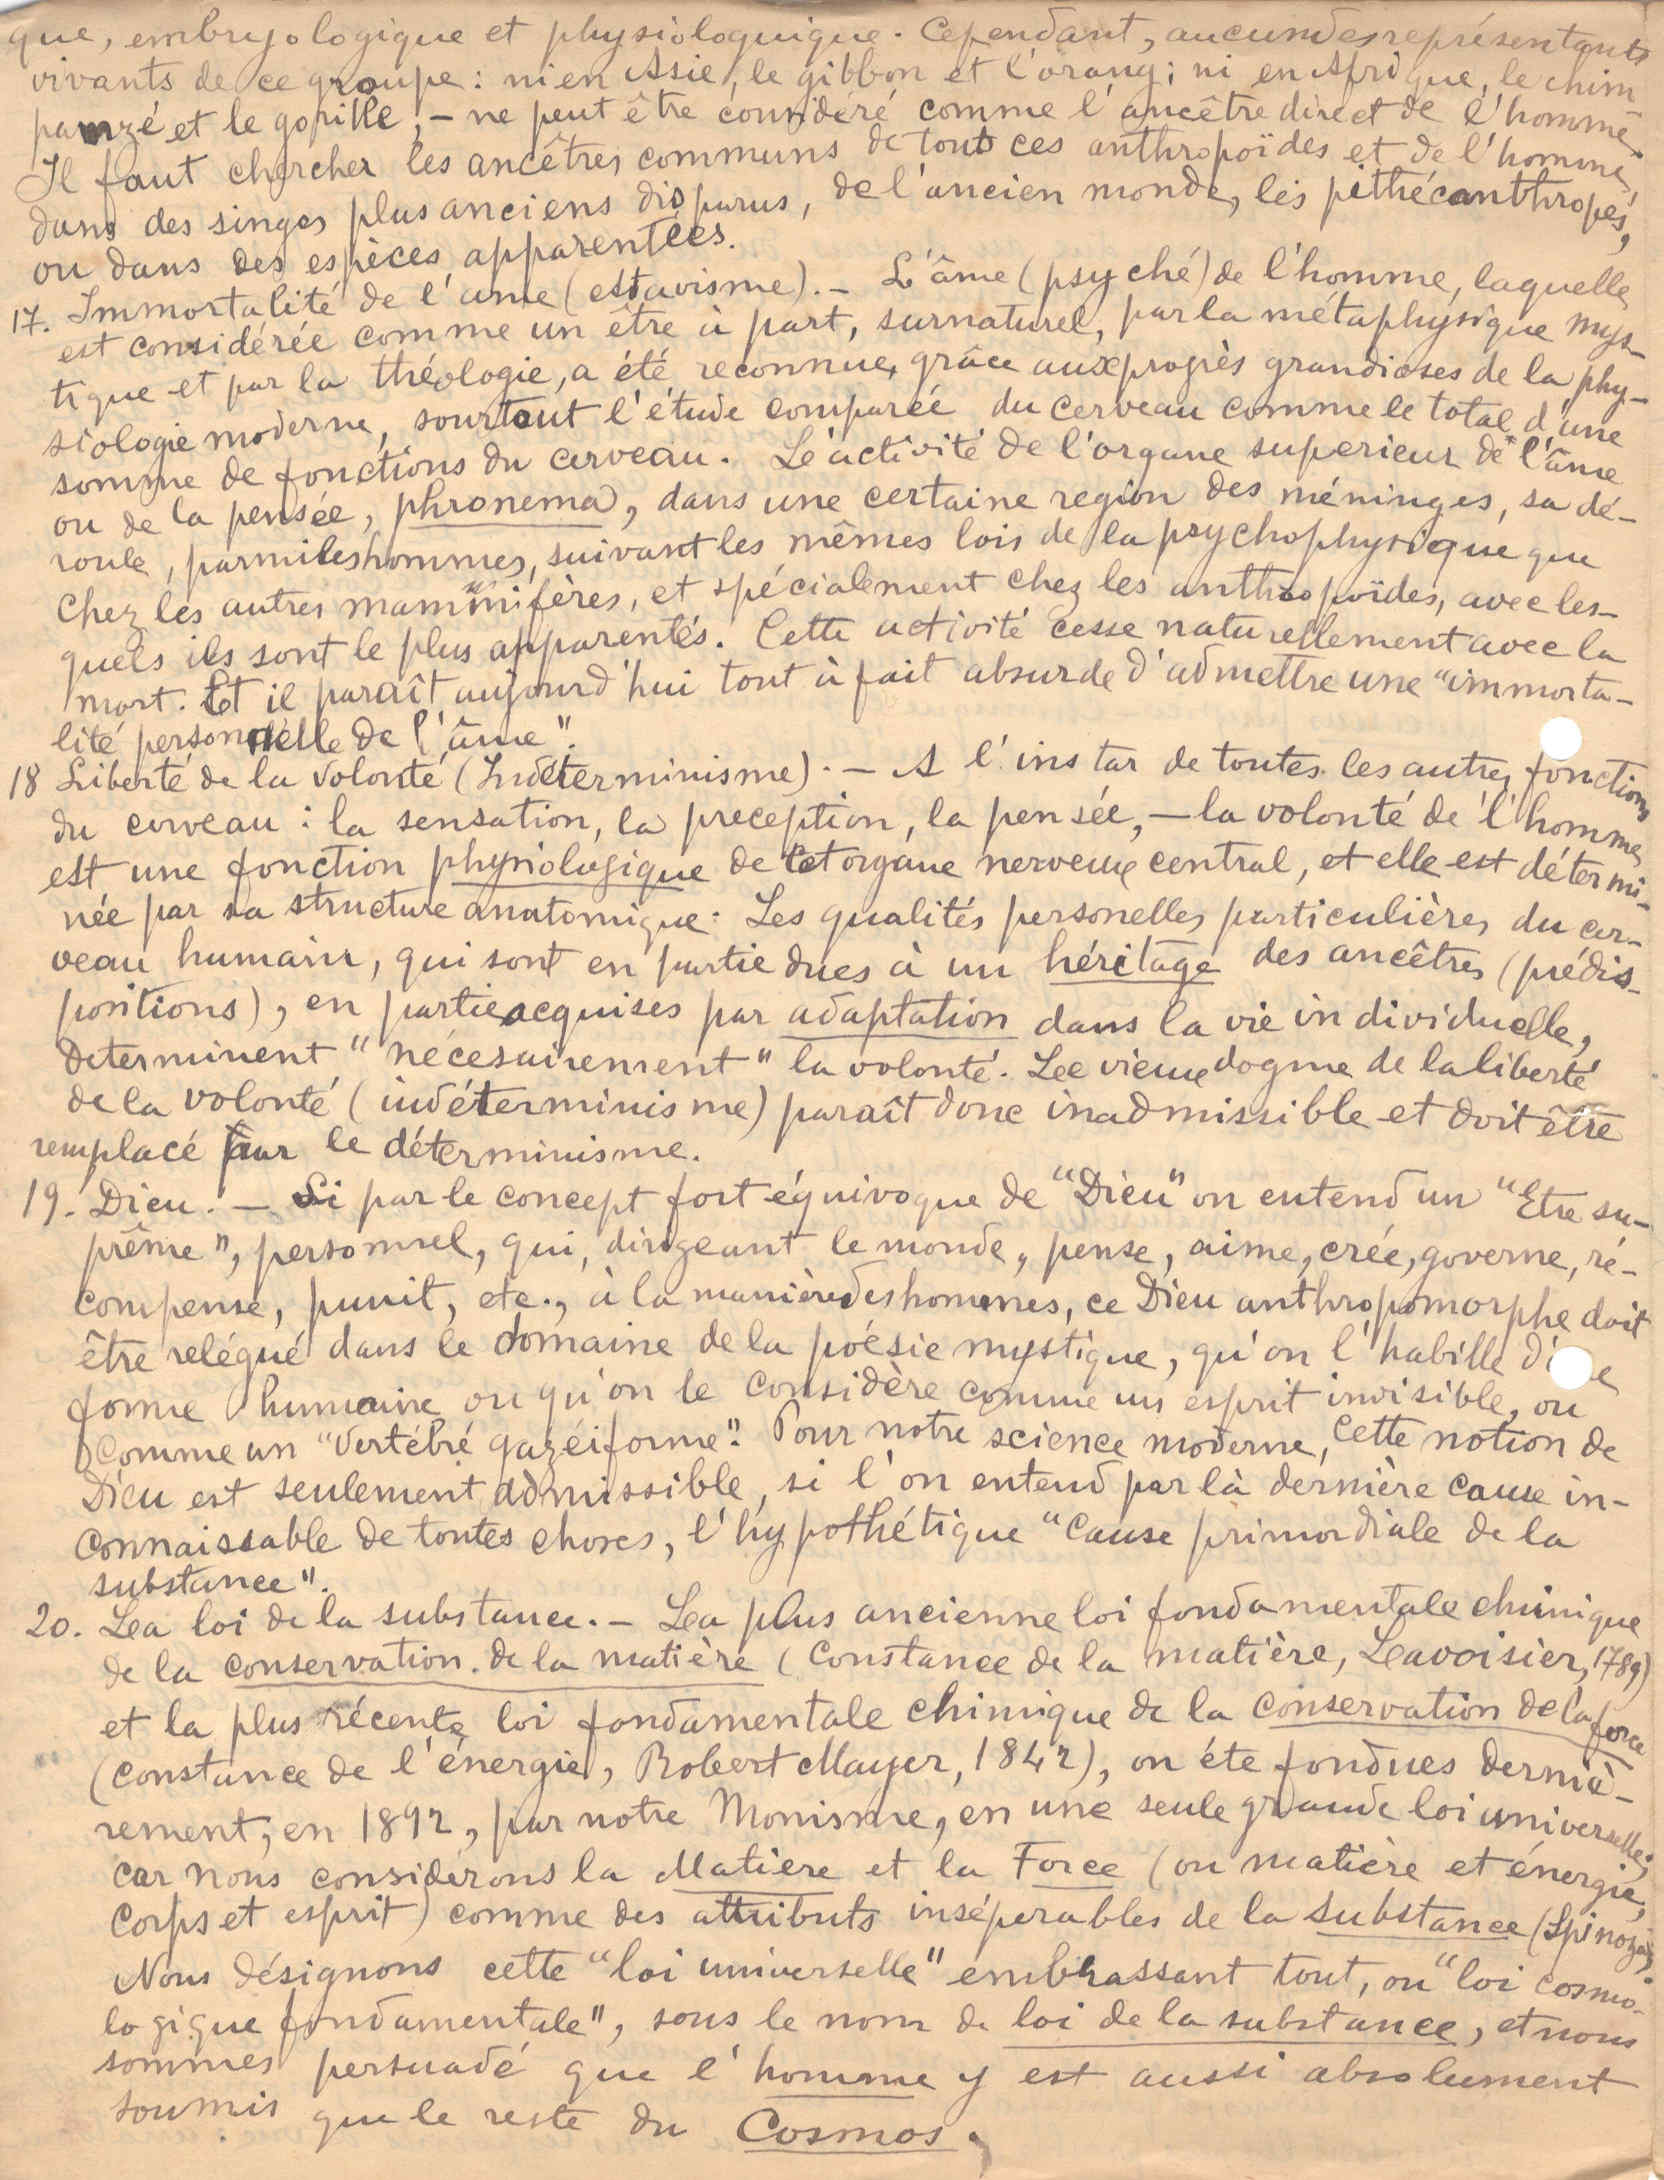 que, embryologique et physiologuique. Cependant, aucun des représentants
vivants de ce groupe : ni en Asie, le gibbon et l'orang; ni en Afrique, le chim
panzé et le gorille, — ne peut être considéré comme l'ancêtre direct de l'homme.
Il faut chercher les ancêtres communs de touts ces anthropoïdes et de l'homme,
dans des singes plus anciens disparus, de l'ancien monde, les pithécanthropes,
ou dans des espèces apparentées.
17. Immortalité de l'ame (). — L'âme (psyché) de l'homme, laquelle
est considérée comme un être à part, surnaturel, par la métaphysique mys-
tique et par la théologie, a été reconnue, grâce aux progrès grandioses de la phy-
siologie moderne, sourtout l'étude comparée du cerveau comme le total d'une
somme de fonctions du cerveau. L'activité de l'organe superieur de l'âme
ou de la pensée, phronema, dans une certaine region des méninges, sa dé-
roule, parmi les hommes, suivant les mêmes lois de la psychophysique que
chez les autres mammifères, et spécialement chez les anthropoïdes, avec les-
quels ils sont le plus apparentés. Cette activité cesse naturellement avec la
mort. Et il paraît aujourd'hui tout à fait absurde d'admettre une "immorta-
lité personnelle de l'âme".
18 Liberté de la volonté (Indéterminisme). — A l'instar de toutes les autres fonctions
du cerveau : la sensation, la preception, la pensée, — la volonté de l'homme
est une fonction physiologique de cet organe nerveux central, et elle est détermi-
née par sa structure anatomique. Les qualités personelles particulières du cer-
veau humain, qui sont en partie dues à un héritage des ancêtres (prédis-
positions), en partie acquises par adaptation dans la vie individuelle,
determinent "nécesairement" la volonté. Le vieux dogme de la liberté
de la volonté (indéterminisme) paraît donc inadmissible et doit être
remplacé par le déterminisme.
19. Dieu. — Si par le concept fort équivoque de "Dieu" on entend un "Etre su-
prême", personnel, qui, dirigeant le monde, pense, aime, crée, governe, ré-
compense, punit, etc., à la manière des hommes, ce Dieu anthropomorphe doit
être relégué dans le domaine de la poésie mystique, qu'on l'habille
forme humaine ou qu'on le considère comme un esprit invisible, ou
comme un "vertébré gazéiforme". Pour notre science moderne, cette notion de
Dieu est seulement admissible, si l'on entend par là dernière cause in-
connaissable de toutes choses, l'hypothétique "Cause primordiale de la
substance".
20. La loi de la substance. — La plus ancienne loi fondamentale chimique
de la conservation de la matière (Constance de la matière, Lavoisier, 1789)
et la plus récente loi fondamentale chimique de la conservation de la force
(constance de l'énergie, Robert Mayer, 1842), on éte fondues derniè-
rement, en 1892, par notre Monisme, en une seule grande loi universelle;
car nous considérons la Matiere et la Force (ou matière et énergie,
corps et esprit) comme des attributs inséperables de la substance (Spinoza).
Nous désignons cette "loi universelle" embrassant tout, ou "loi cosmo-
logique fondamentale", sous le nom de loi de la substance, et nous
sommes persuadé que l'homme y est aussi absolument
soumis que le reste du Cosmos.